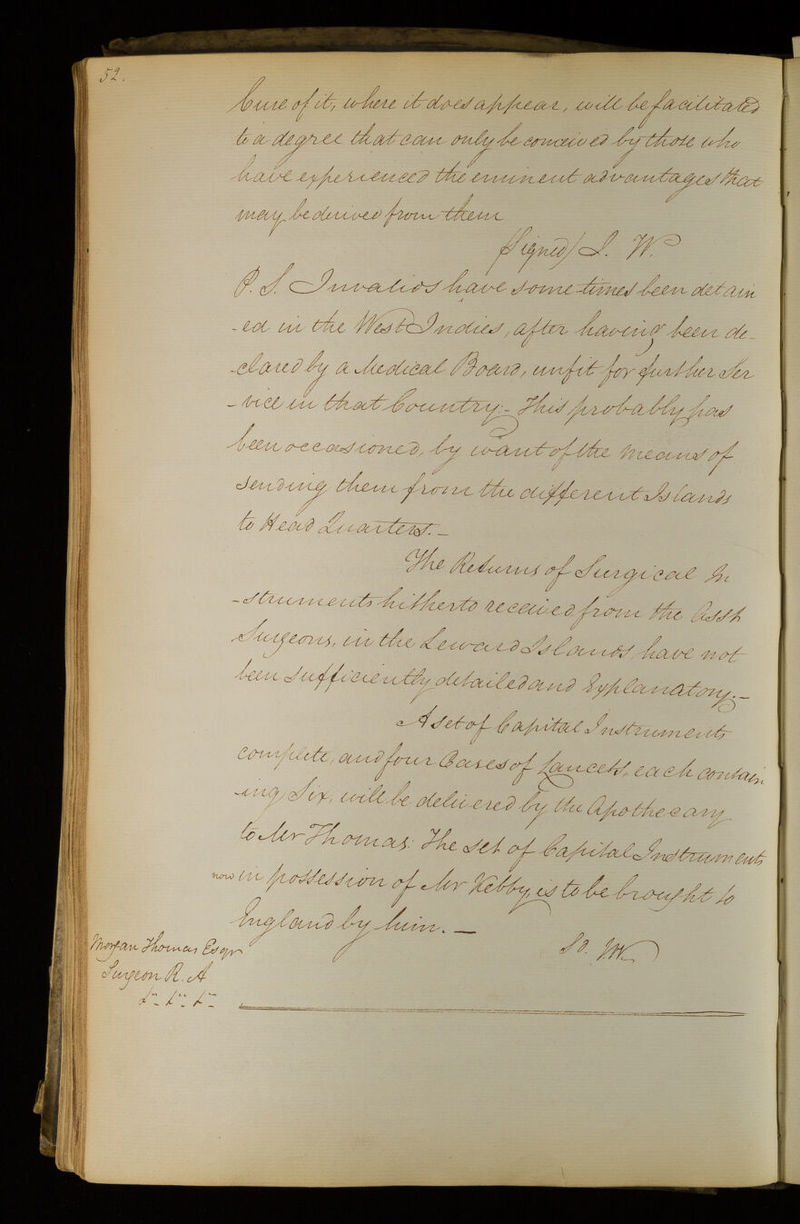 52.
Cure of it, where it does appear, will be facilitated
to a degree that can only be conceived by those who
have experienced the eminent advantages that
may be derived from them
Signed) J. W.
P. S. Invalids have some times been detain
-ed in the West Indies, after having been de-
-clared by a Medical Board, unfit for further Ser
-vice in that Country - This probably has
been occasioned, by want of the means of
sending them from the different Islands
to Head Quarters. -
The Returns of Surgical In
-struments hitherto received from the Asst
Surgeons, in the Leward Islands have not
been Sufficiently detailed and Explanatory. -
A set of Capital Instruments
complete, and four Cases of Lancets, each contain
-ing Six, will be delivered by the Apothecary
to Mr Thomas. The set of Capital Instruments
now in possession of Mr Kebby, is to be brought to
England by him. -
Morgan Thomas Esqr
Surgeon R. A